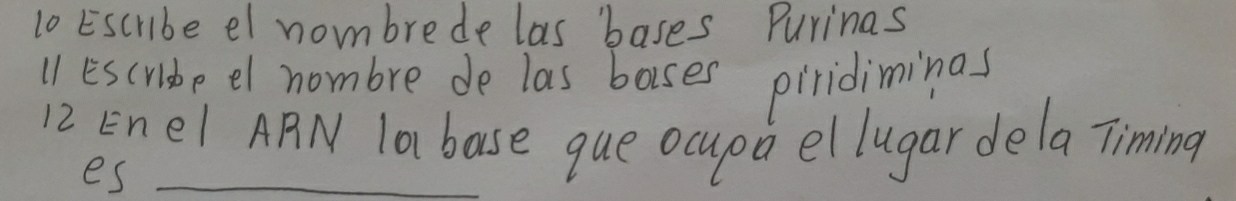 10 Escribe el nombre de las bases Purinas
11 Escribe el nombre de las bases piridiminas
12 En el ARN la base que ocupa el lugar de la Timina
es